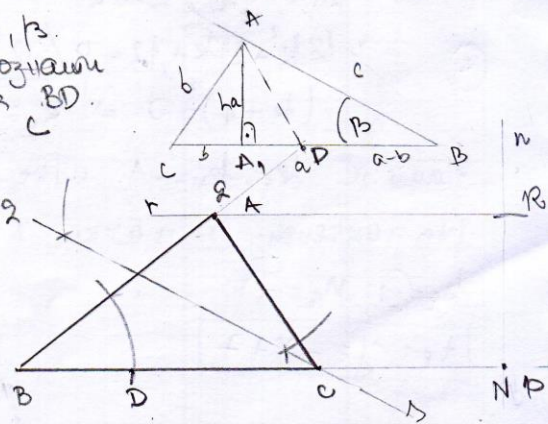 , β.
ознати
BD.
C
A
b
ha
c
β
C
b
A₁
a
D
a-b
B
n
r
q
A
R
q
B
D
C
N
p
s